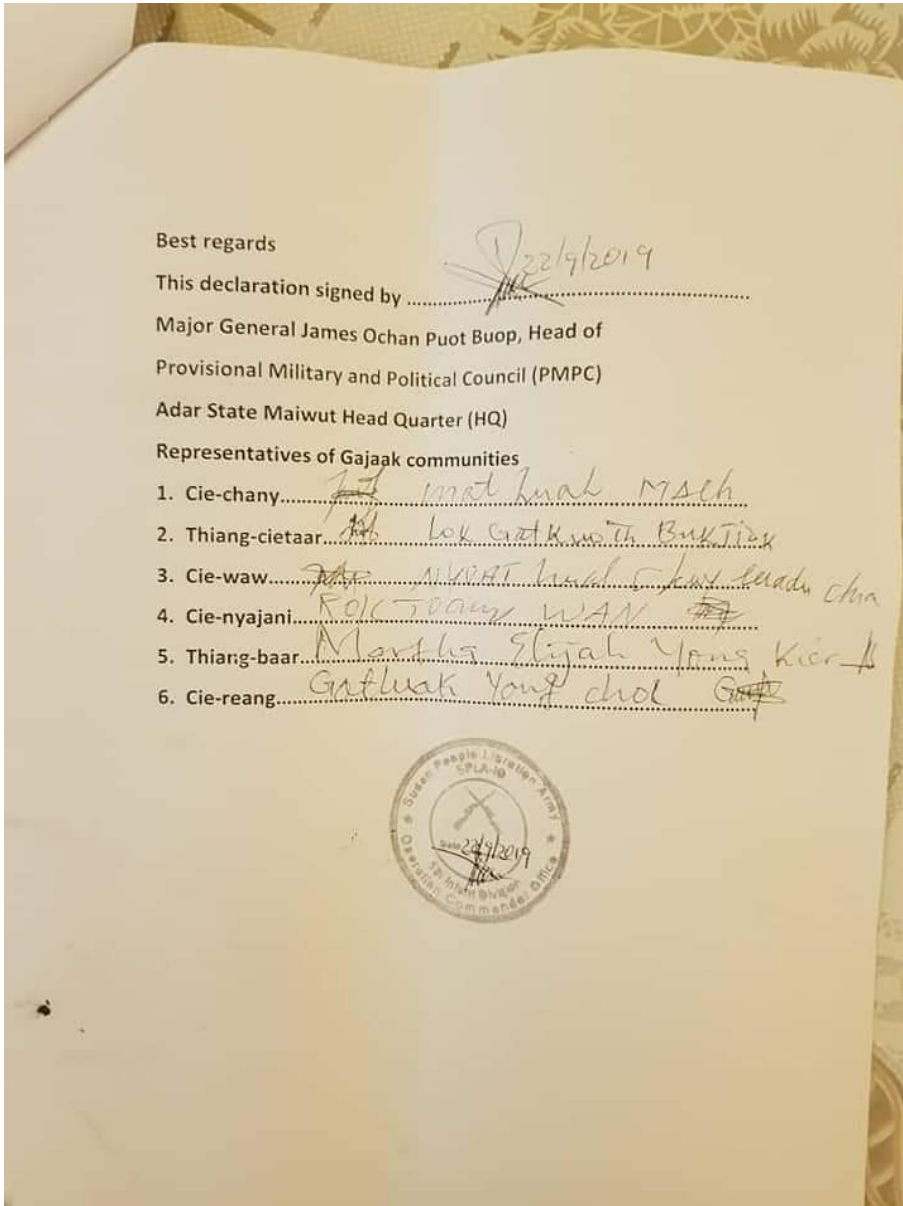 Best regards
22/9/2019
This declaration signed by ........................................................
Major General James Ochan Puot Buop, Head of
Provisional Military and Political Council (PMPC)
Adar State Maiwut Head Quarter (HQ)
Representatives of Gajaak communities
1. Cie-chany........
2. Thiang-cietaar Lok Gatkuoth
3. Cie-waw........
4. Cie-nyajani.... WAN
5. Thiang-baar.. Martha Elijah Yong Kier
6. Cie-reang........ Gatluak Yong chol
Sudan People Libration Army
SPLA-IO
Date 22/9/2019
5th Infant Division
Operation Commander Office